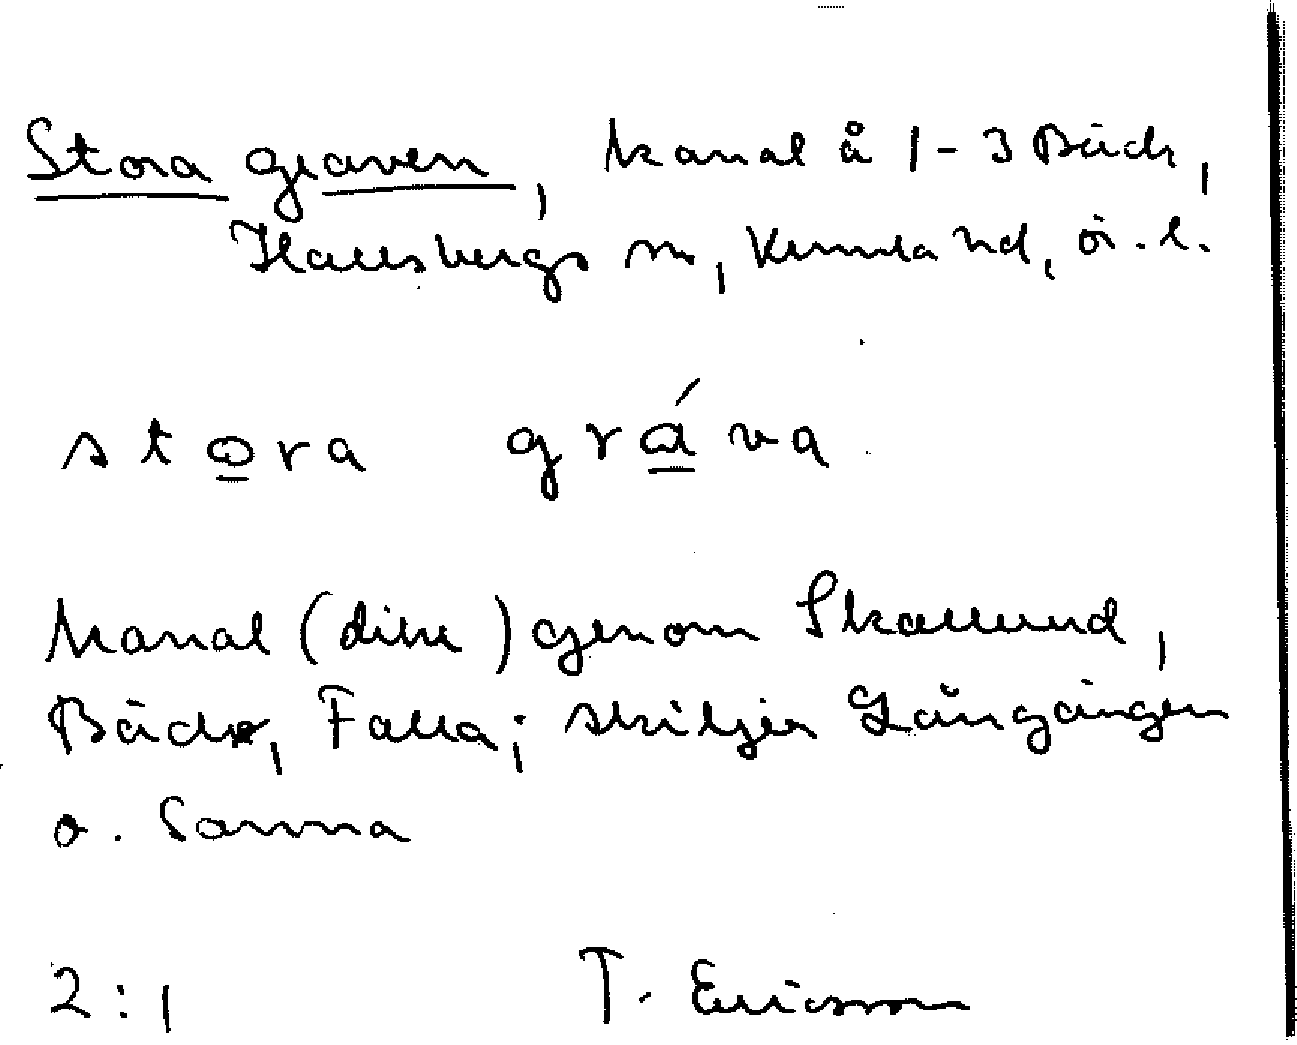 Stora graven, kanal å 1-3 Bäck,
Hallsbergs sn, Kumla hd, ör. l.
stora gráva
Kanal (dike) genom Skallund,
Bäck, Falla; skiljer Långängen
o. Sanna
2:1 T. Ericsson